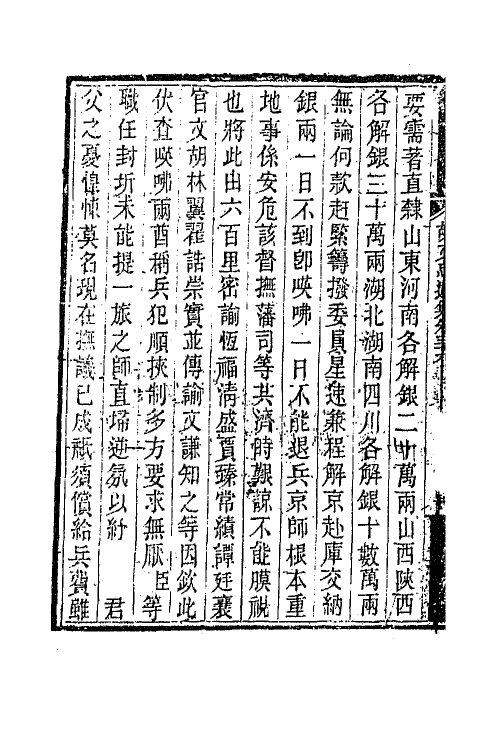 要需著直隸山東河南各解銀二十萬兩山西陝西
各解銀三十萬兩湖北湖南四川各解銀十數萬兩
無論何款赶緊籌撥委員星速兼程解京赴庫交納
銀兩一日不到卽㖟咈一日不能退兵京師根本重
地事係安危該督撫藩司等共濟時艱諒不能膜視
也將此由六百里密諭恆福淸盛賈臻常績譚廷襄
官文胡林翼翟誥崇實並傳諭文謙知之等因欽此
伏查㖟咈兩酋稱兵犯順挾制多方要求無厭臣等
職任封圻未能提一旅之師直埽逆氛以紓　君
父之憂惶悚莫名現在撫議已成祗須償給兵費雖